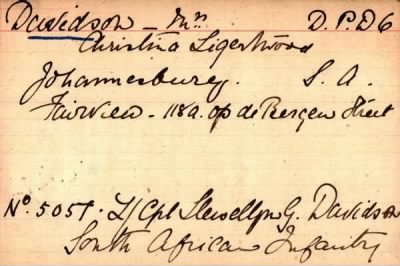 Davidson – Mrs D.P.D6
Christina Ligertwood
Johannesburg. S.A.
Fairview – 118a. op de Bergen Street
No. 5051. L/Cpl Llewellyn G. Davidson
South African Infantry